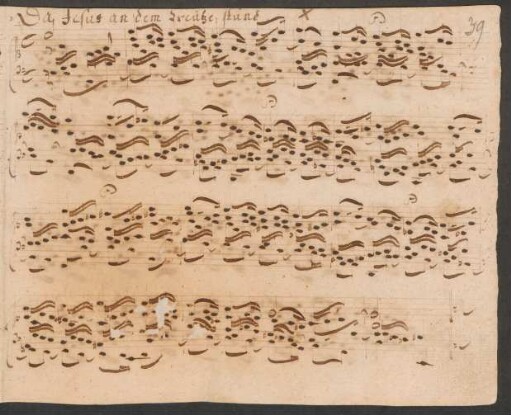 Da Jesus an dem Kreutze stund
39